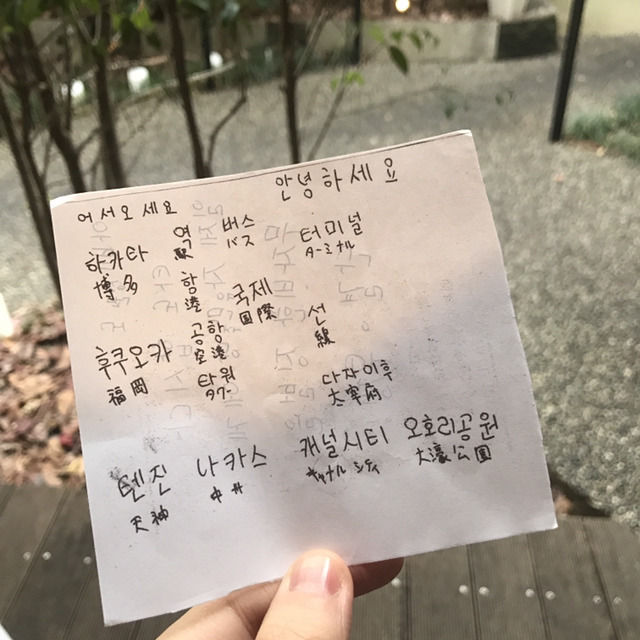 안녕하세요
어서오세요
하카타 역 버스 터미널
博多 駅 バス ターミナル
항 국제 선
港 国際 線
후쿠오카 공항
福岡 空港
타워 다자이후
タワー 太宰府
텐진 나카스 캐널시티 오호리공원
天神 中州 キャナルシティ 大濠公園